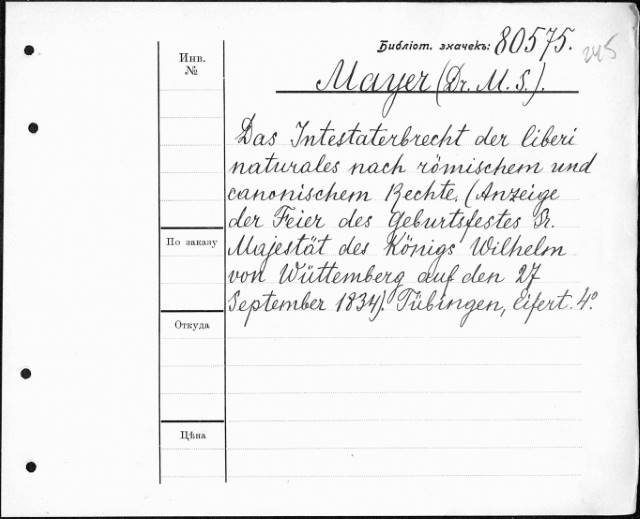 Библіот. значекъ: 80575.
245
Инв.
№
Mayer (Dr. M. S.).
Das Intestaterbrecht der liberi
naturales nach römischem und
canonischem Rechte. (Anzeige
der Feier des Geburtsfestes Sr.
По заказу
Majestät des Königs Wilhelm
von Wüttemberg auf den 27
September 1834). Tübingen, Eifert. 4º.
Откуда
Цѣна